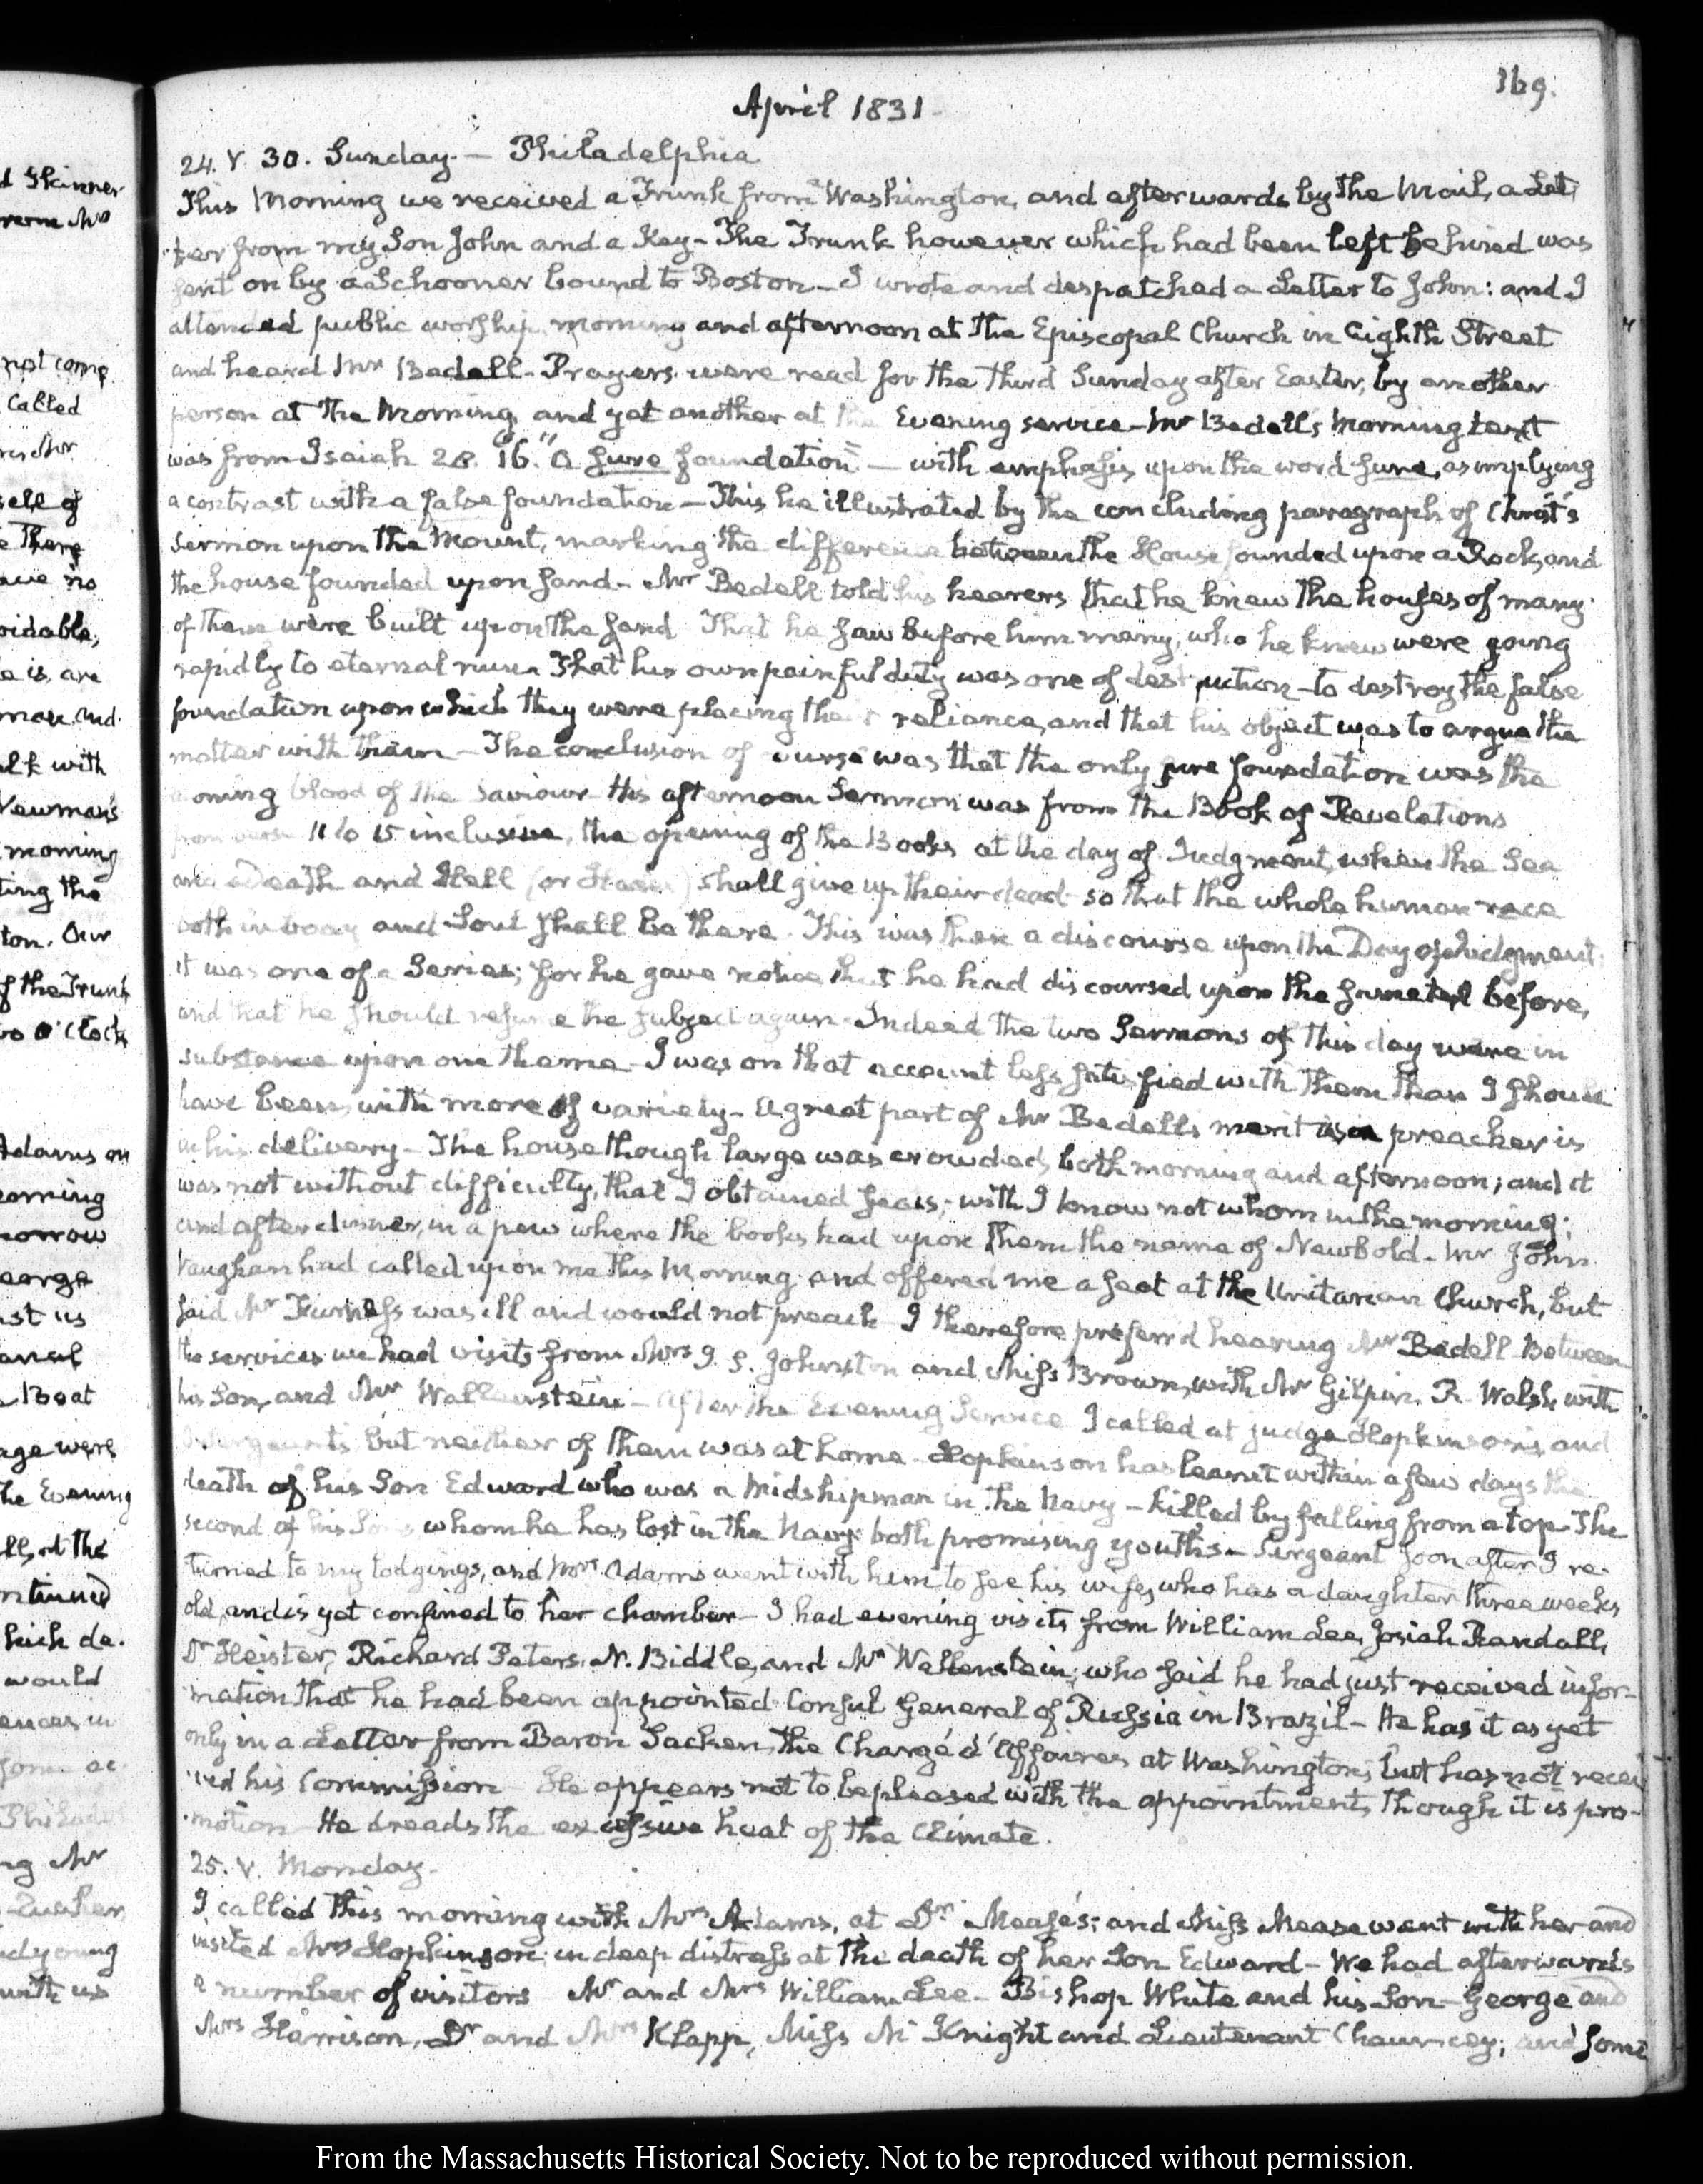 d Skinner
from Mrs
not come
Called
Mr
self of
There
have no
oidable,
is, are
man. and.
with
Newman's
morning
ting the
ton. Our
of the Trunk
two o'Clock
Adams on
earning
morrow
George
ast us
Boat
age were
the Evening
at the
ntinued
hich de.
would
ences in
ac.
ng Mr
young
with us
169.
April 1831.
24. V. 30. Sunday. — Philadelphia
This Morning we received a Trunk from Washington, and afterwards by the Mail, a Let
ter from my Son John and a Key – The Trunk however which had been left behind was
sent on by a Schooner bound to Boston – I wrote and despatched a Letter to John: and I
attended public worship, morning and afternoon at the Episcopal Church in Eighth Street
and heard Mr Bedell – Prayers were read for the third Sunday after Easter, by another
person at the Morning, and yet another at the Evening service – Mr Bedell's Morning text
was from Isaiah 28. 16. "a sure foundation" — with emphasis upon the word sure, as implying
a contrast with a false foundation – This he illustrated by the concluding paragraph of Christ's
Sermon upon the Mount, marking the difference between the House founded upon a Rock, and
the house founded upon sand – Mr Bedell told his hearers that he knew the houses of many
of them were built upon the sand That he saw before him many, who he knew were going
rapidly to eternal ruin. That his own painful duty was one of destruction – to destroy the false
foundation upon which they were placing their reliance, and that his object was to argue the
matter with them – The conclusion of course was that the only sure foundation was the
atoning blood of the Saviour. His afternoon Sermon was from the Book of Revelations
from verse 11 to 15 inclusive, the opening of the Books at the day of Judgment, when the Sea
and Death and Hell (or ) shall give up their dead so that the whole human race
both in body and Soul shall be there. This was then a discourse upon the Day of Judgment;
it was one of a Series; for he gave notice that he had discoursed upon the before,
and that he should resume the subject again. Indeed the two Sermons of this day were in
substance upon one theme – I was on that account less satisfied with them than I should
have been with more of variety – A great part of Mr Bedell's merit as a preacher is
in his delivery – The house though large was crowded, both morning and afternoon; and it
was not without difficulty, that I obtained seats; with I know not whom in the morning;
and after dinner, in a pew where the books had upon them the name of Newbold. Mr John
Vaughan had called upon me this Morning and offered me a seat at the Unitarian Church, but
said Mr Furness was ill and would not preach I therefore preferr'd hearing Mr Bedell. Between
the services we had visits from Mrs J. S. Johnston and Miss Brown, with Mr Gilpin, R. Walsh with
his Son, and Mr Wallenstein – After the Evening Service I called at judge Hopkinson's, and
but neither of them was at home. Hopkinson has learnt within a few days the
death of his Son Edward who was a Midshipman in the Navy – killed by falling from a top. The
second of his Sons whom he has lost in the Navy both promising youths – Sergeant soon after I re-
turned to my lodgings, and Mrs Adams went with him to see his wife, who has a daughter three weeks
old, and is yet confined to her chamber – I had evening visits from William Lee, Josiah Randall,
Dr Heister, Richard Peters, N. Biddle, and Mr Wallenstein; who said he had just received infor-
mation that he had been appointed Consul General of Russia in Brazil – He has it as yet
only in a Letter from Baron Sacken, the Chargé d'Affaires at Washington; but has not recei
ved his Commission He appears not to be pleased with the appointment, though it is pro-
motion He dreads the excessive heat of the Climate.
25. V. Monday.
I called this morning with Mrs Adams, at Dr Mease's; and Miss Mease went with her and
visited Mrs Hopkinson in deep distress at the death of her Son Edward – We had afterwards
a number of visitors Mr and Mrs William Lee – Bishop White and his Son – George and
Mrs Harrison, Dr and Mrs Klapp, Miss Mc Knight and Lieutenant Chauncey; and some
From the Massachusetts Historical Society. Not to be reproduced without permission.